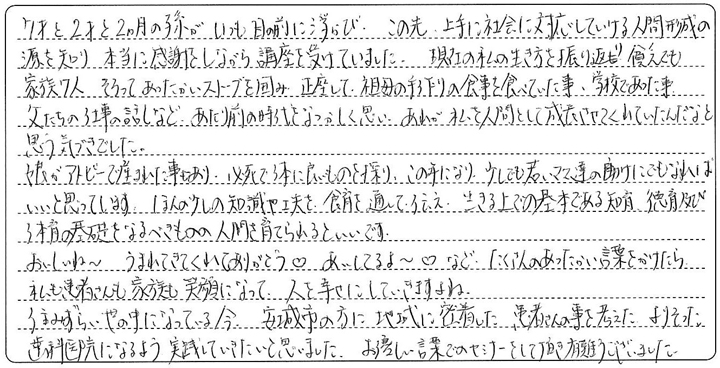 7才と2才と2ヵ月の孫がいつも目の前に浮かび、この先、上手に社会に対応していける人間形成の
源を知り本当に感謝をしながら講座を受けていました。現在の私の生き方を振り返れば食えても
家族7人そろってあったかいストーブを囲み、正座して祖母の手作りの食事を食べていた事、学校であった事
父たちの仕事の話しなど、あたり前の時代をなつかしく思い、あれが私を人間として成長させてくれていたんだなと
思う気づきでした。
娘がアトピーで産まれた事もあり、必死で体に良いものを探り、この年になり少しでも若いママ達の助けにでもなれれば
いいと思っています。ほんの少しの知識や工夫を、食育を通して伝え、生きる上での基本である知育、徳育及び
体育の基礎となるべきものの人間を育てられるといいです。
おいしいね～ うまれてきてくれてありがとう♡ あいしてるよ～♡ など、たくさんのあったかい言葉をかけたら
私も患者さんも家族も笑顔になって、人を幸せにしていきますよね。
うまみずらい世の中になっている今、安城市の方に地域に密着した患者さんの事を考えた、よりそった
歯科医院になるよう実践していきたいと思いました。お優しい言葉でのセミナーをして頂き有難うございました。